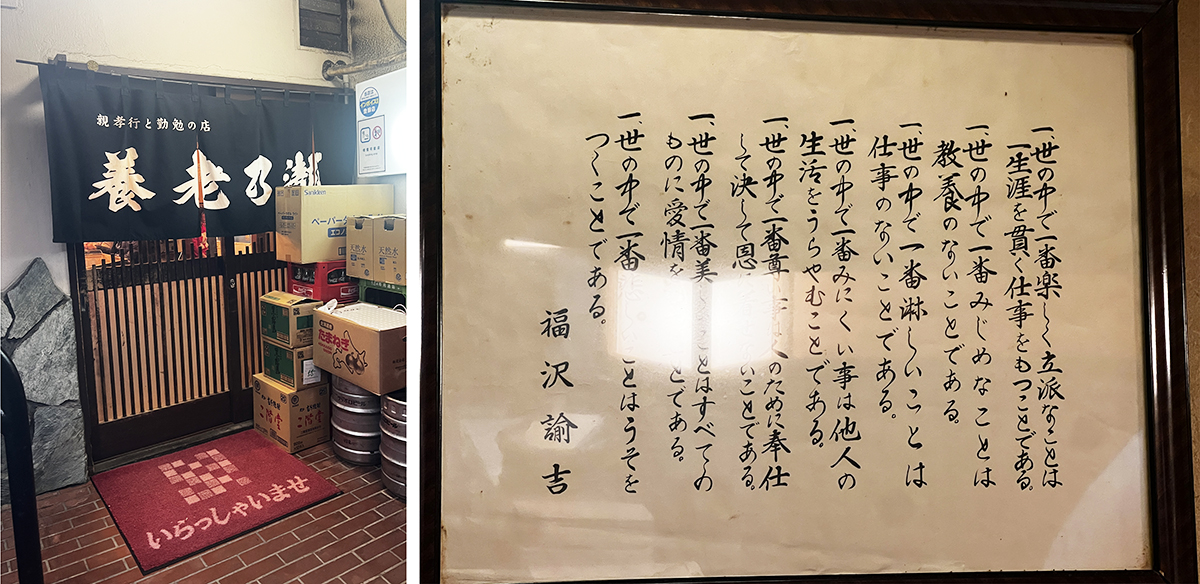 親孝行と勤勉の店
養老乃瀧
Saniklen
ペーパータ
エコノ
天然水
天然水
たまねぎ
二階堂
いらっしゃいませ
一、世の中で一番楽しく立派なことは
一生涯を貫く仕事をもつことである。
一、世の中で一番みじめなことは
教養のないことである。
一、世の中で一番淋しいことは
仕事のないことである。
一、世の中で一番みにくい事は他人の
生活をうらやむことである。
一、世の中で一番尊い のために奉仕
して決して恩 いことである。
一、世の中で一番美しいことはすべての
ものに愛情を とである。
一、世の中で一番 ことはうそを
つくことである。
福沢諭吉